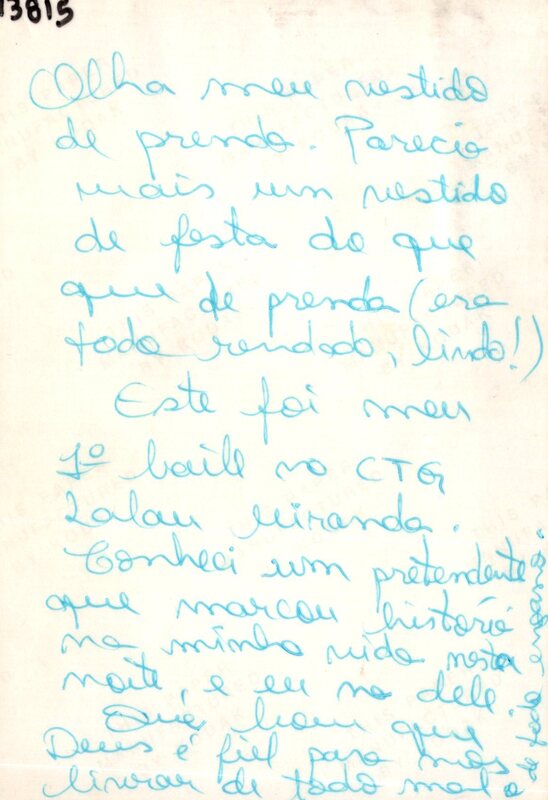 13815
Olha meu vestido
de prenda. Parecia
mais um vestido
de festa do que
que de prenda (era
todo rendado, lindo!)
Este foi meu
1º baile no CTG
Lalau Miranda.
Conheci um pretendente
que marcou história
na minha vida nesta
noite, e eu na dele.
Que bom que
Deus é fiel para nos
livrar de todo mal e
de todo engano.